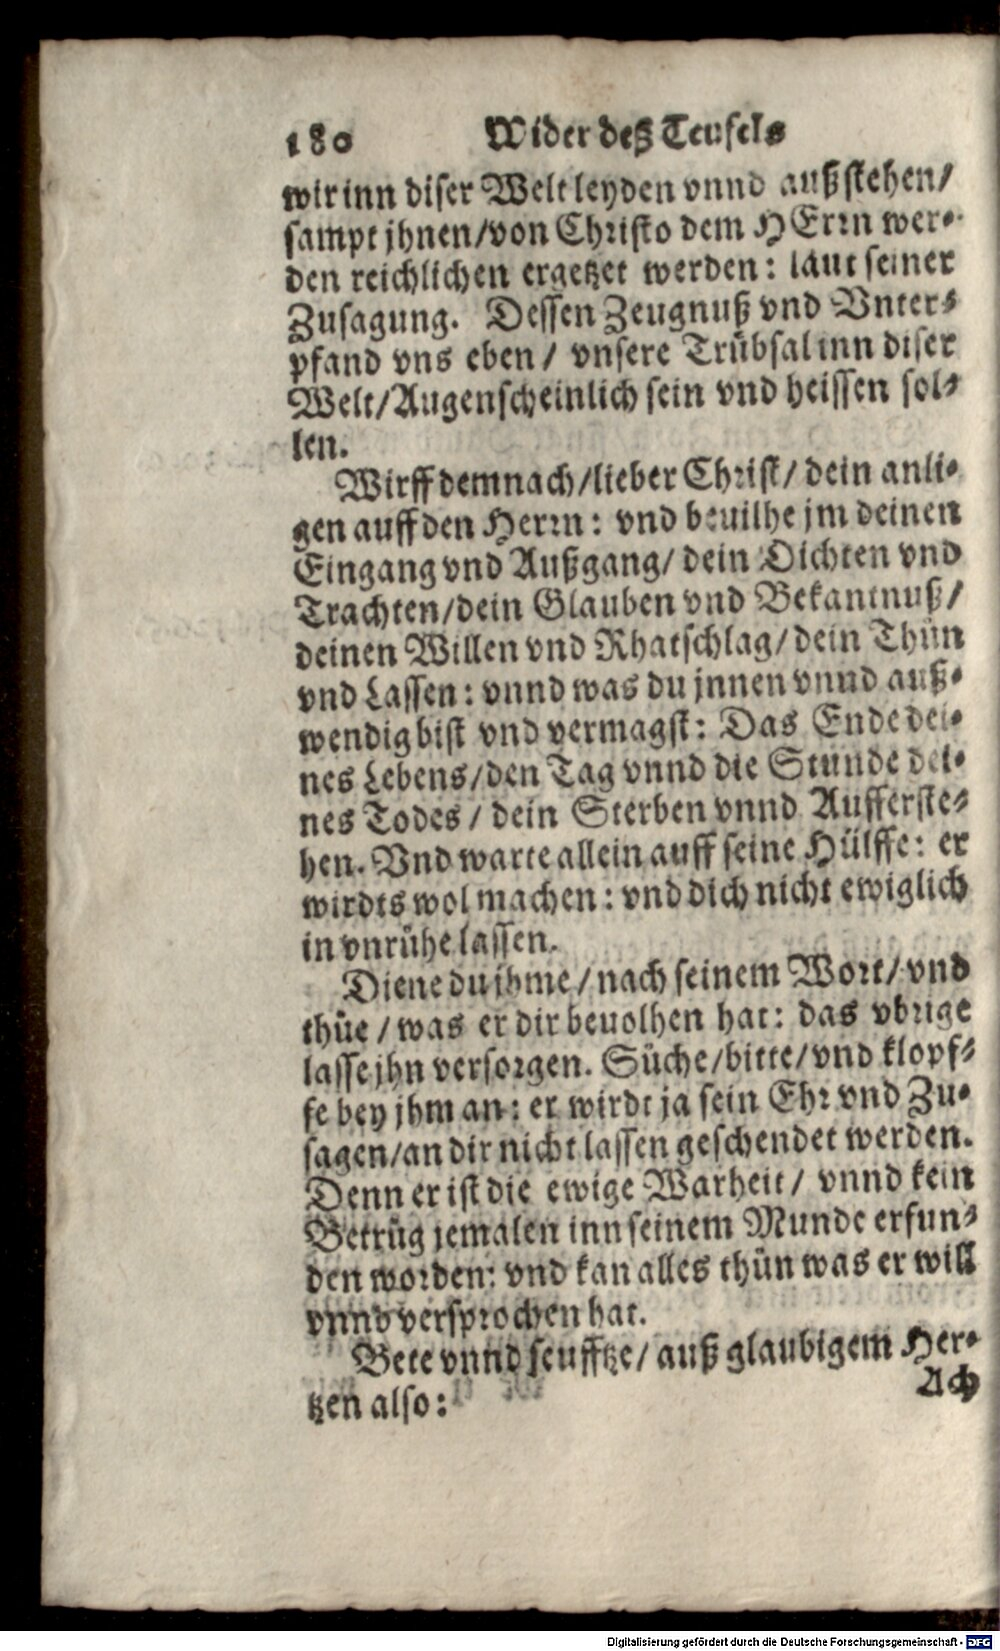 180 Wider deß Teufels
wir inn diser Welt leyden vnnd außstehen/
sampt jhnen/von Christo dem HErrn wer-
den reichlichen ergetzet werden: laut seiner
Zusagung. Dessen Zeugnuß vnd Vnter-
pfand vns eben/ vnsere Trübsal inn diser
Welt/Augenscheinlich sein vnd heissen sol-
len.
Wirff demnach/lieber Christ/ dein anli-
gen auff den Herrn: vnd beuilhe jm deinen
Eingang vnd Außgang/ dein Dichten vnd
Trachten/dein Glauben vnd Bekantnuß/
deinen Willen vnd Rhatschlag/ dein Thün
vnd Lassen: vnnd was du jnnen vnnd auß-
wendig bist vnd vermagst: Das Ende dei-
nes Lebens/den Tag vnnd die Stunde dei-
nes Todes/ dein Sterben vnnd Aufferste-
hen. Vnd warte allein auff seine Hülffe: er
wirdts wol machen: vnd dich nicht ewiglich
in vnrühe lassen.
Diene du jhme/ nach seinem Wort/ vnd
thüe/ was er dir beuolhen hat: das vbrige
lasse jhn versorgen. Süche/bitte/vnd klopf-
fe bey jhm an: er wirdt ja sein Ehr vnd Zu-
sagen/an dir nicht lassen geschendet werden.
Denn er ist die ewige Warheit/ vnnd kein
Betrüg jemalen inn seinem Munde erfun-
den worden: vnd kan alles thün was er will
vnnd versprochen hat.
Bete vnnd seufftze/ auß glaubigem Her-
tzen also:
Ach
Digitalisierung gefördert durch die Deutsche Forschungsgemeinschaft - DFG